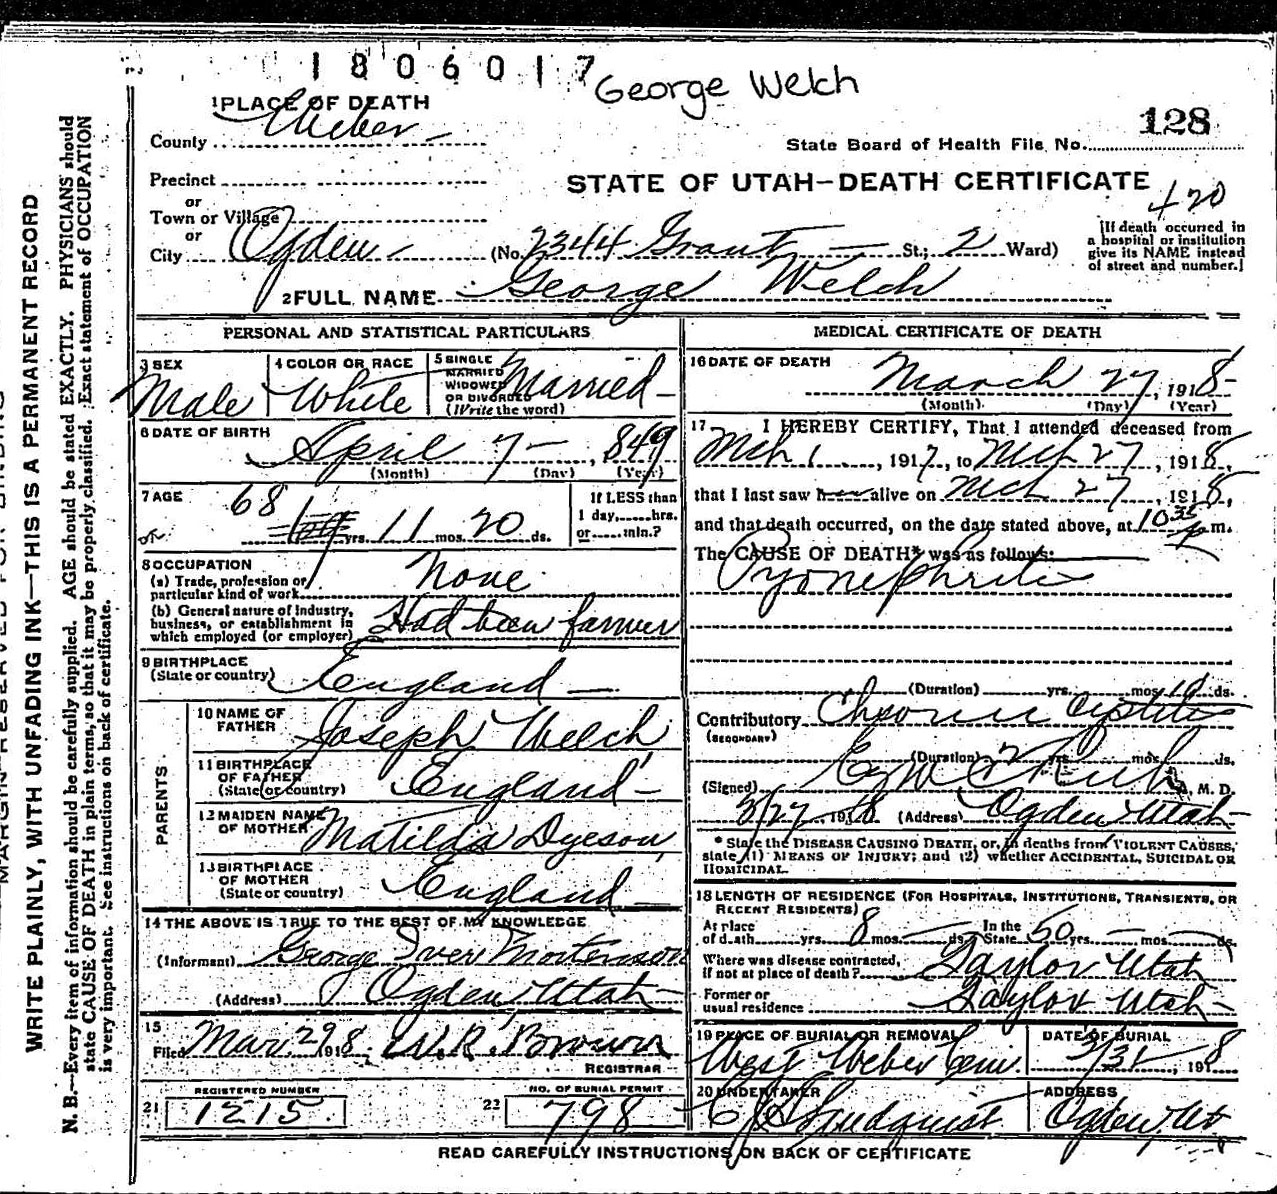 1806017
George Welch
1 PLACE OF DEATH
County Weber
128
State Board of Health File No.
Precinct
or
STATE OF UTAH—DEATH CERTIFICATE
420
Town or Village
or
City Ogden (No. 2344 Grant St.; 2 Ward)
[If death occurred in a hospital or institution give its NAME instead of street and number.]
2 FULL NAME George Welch
PERSONAL AND STATISTICAL PARTICULARS
3 SEX Male
4 COLOR OR RACE White
5 SINGLE MARRIED WIDOWED OR DIVORCED (Write the word) Married
6 DATE OF BIRTH April 7, 849
(Month) (Day) (Year)
7 AGE 68 yrs. 11 mos. 20 ds.
If LESS than 1 day,......hrs. or......min.?
8 OCCUPATION
(a) Trade, profession or particular kind of work None
(b) General nature of industry, business, or establishment in which employed (or employer) Had been farmer
9 BIRTHPLACE (State or country) England
PARENTS
10 NAME OF FATHER Joseph Welch
11 BIRTHPLACE OF FATHER (State or country) England
12 MAIDEN NAME OF MOTHER Matilda Dyeson
13 BIRTHPLACE OF MOTHER (State or country) England
14 THE ABOVE IS TRUE TO THE BEST OF MY KNOWLEDGE
(Informant) George Iver Mortenson
(Address) Ogden Utah
15 Filed Mar. 29 1918. W.R. Brown
REGISTRAR
REGISTERED NUMBER
21 1215
NO. OF BURIAL PERMIT
22 798
MEDICAL CERTIFICATE OF DEATH
16 DATE OF DEATH
March 27, 1918
(Month) (Day) (Year)
17 I HEREBY CERTIFY, That I attended deceased from
Mch 1, 1917, to Mch 27, 1918,
that I last saw alive on Mch 27, 1918,
and that death occurred, on the date stated above, at 10 35 P m.
The CAUSE OF DEATH* was as follows:
Pyonephritis
(Duration) yrs. mos. 10 ds.
Contributory Chronic Cystitis
(SECONDARY)
(Duration) 2 yrs. mos. ds.
(Signed) M. D.
3/27 1918 (Address) Ogden Utah
* State the DISEASE CAUSING DEATH, or, in deaths from VIOLENT CAUSES, state (1) MEANS OF INJURY; and (2) whether ACCIDENTAL, SUICIDAL OR HOMICIDAL.
18 LENGTH OF RESIDENCE (FOR HOSPITALS, INSTITUTIONS, TRANSIENTS, OR RECENT RESIDENTS)
At place of death yrs. 8 mos. ds. In the State 50 yrs. mos. ds.
Where was disease contracted, if not at place of death? Taylor Utah
Former or usual residence Taylor Utah
19 PLACE OF BURIAL OR REMOVAL West Weber Cem.
DATE OF BURIAL 3/31, 1918
20 UNDERTAKER Lindquist
ADDRESS Ogden, Ut
READ CAREFULLY INSTRUCTIONS ON BACK OF CERTIFICATE
WRITE PLAINLY, WITH UNFADING INK—THIS IS A PERMANENT RECORD
N. B.—Every item of information should be carefully supplied. AGE should be stated EXACTLY. PHYSICIANS should
state CAUSE OF DEATH in plain terms, so that it may be properly classified. Exact statement of OCCUPATION
is very important. See instructions on back of certificate.